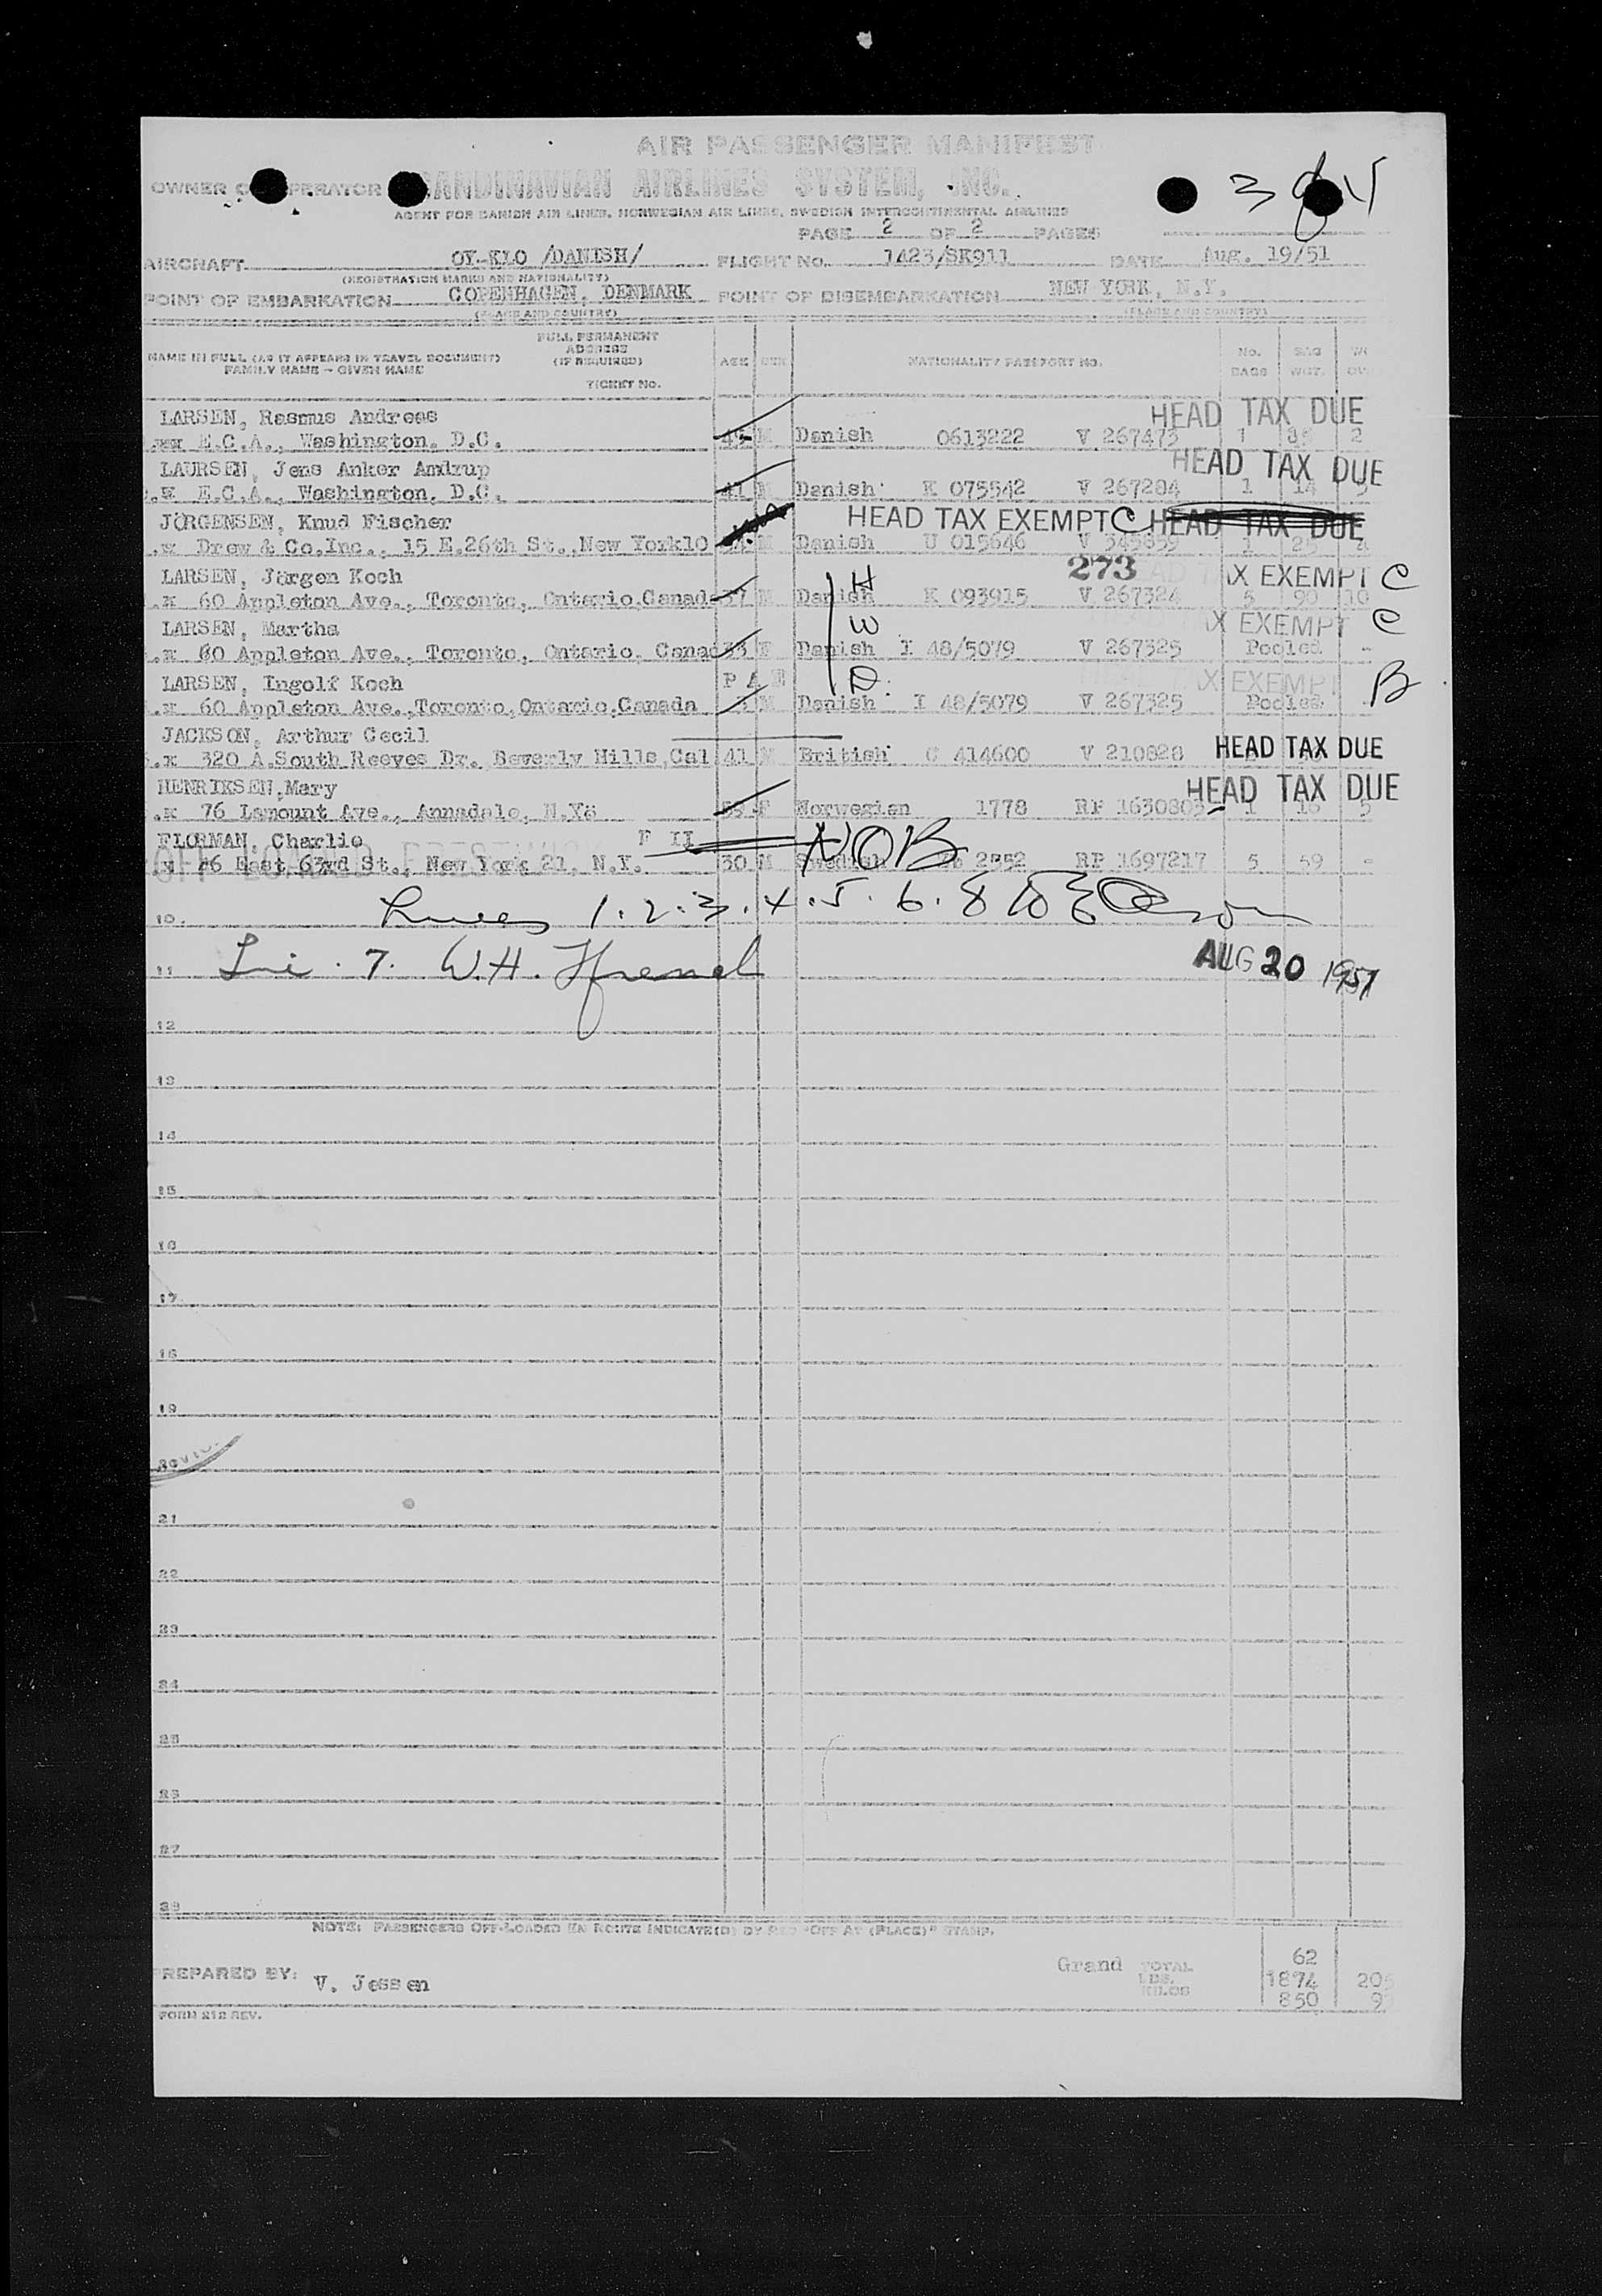 AIR PASSENGER MANIFEST
OWNER OPERATOR SCANDINAVIAN AIRLINES SYSTEM, INC.
AGENT FOR DANISH AIR LINES, NORWEGIAN AIR LINES, SWEDISH INTERCONTINENTAL AIRLINES
PAGE 2 OF 2 PAGES
AIRCRAFT OY-KLO /DANISH/ FLIGHT No. 1423/SK911 DATE Aug. 19/51
(REGISTRATION MARKS AND NATIONALITY)
POINT OF EMBARKATION COPENHAGEN, DENMARK POINT OF DISEMBARKATION NEW YORK, N.Y.
(PLACE AND COUNTRY) (PLACE AND COUNTRY)
NAME IN FULL (AS IT APPEARS IN TRAVEL DOCUMENT) FAMILY NAME - GIVEN NAME FULL PERMANENT ADDRESS (IF REQUIRED) TICKET No. AGE SEX NATIONALITY PASSPORT No. No. BAGS BAG WGT.
LARSEN, Rasmus Andreas HEAD TAX DUE
E.C.A., Washington, D.C. M Danish 0613222 V 267473 1 2
LAURSEN, Jens Anker Amdrup HEAD TAX DUE
E.C.A., Washington, D.C. 41 M Danish K 075542 V 267284 1 14
JÖRGENSEN, Knud Fischer HEAD TAX EXEMPT C HEAD TAX DUE
.x Drew & Co.Inc., 15 E.26th St., New York10 M Danish U 015646 V 345859 1
LARSEN, Jörgen Koch H 273 HEAD TAX EXEMPT C
.x 60 Appleton Ave., Toronto, Ontario,Canada 37 M Danish K 093915 V 267324 5 90 10
LARSEN, Martha W TAX EXEMPT C
.x 60 Appleton Ave., Toronto, Ontario, Canad 33 F Danish I 48/5079 V 267325 Pooled -
LARSEN, Ingolf Koch D. TAX EXEMPT B
.x 60 Appleton Ave.,Toronto,Ontario,Canada M Danish I 48/5079 V 267325 Pooled -
JACKSON, Arthur Cecil
.x 320 A.South Reeves Dr. Beverly Hills,Cal 41 M British C 414600 V 210828 HEAD TAX DUE
HENRIKSEN,Mary HEAD TAX DUE
.x 76 Lamount Ave., Annadale, N.Y. F Norwegian 1778 RP 1630803 1 5
FLORMAN, Charlie F II NOB
x 46 East 63rd St., New York 21, N.Y. 30 M Swedish 2552 RP 1697217 5 59 -
10. 1.2.3.4.5.6.8
11 7. W.H. AUG 20 1951
12
13
14
15
16
17
18
19
20
21
22
23
24
25
26
27
28
NOTE: PASSENGERS OFF-LOADED EN ROUTE INDICATE(D) BY RED "OFF AT (PLACE)" STAMP.
PREPARED BY: V. Jessen Grand TOTAL 62
LBS. 1874 205
KILOS 850 9
FORM 212 REV.